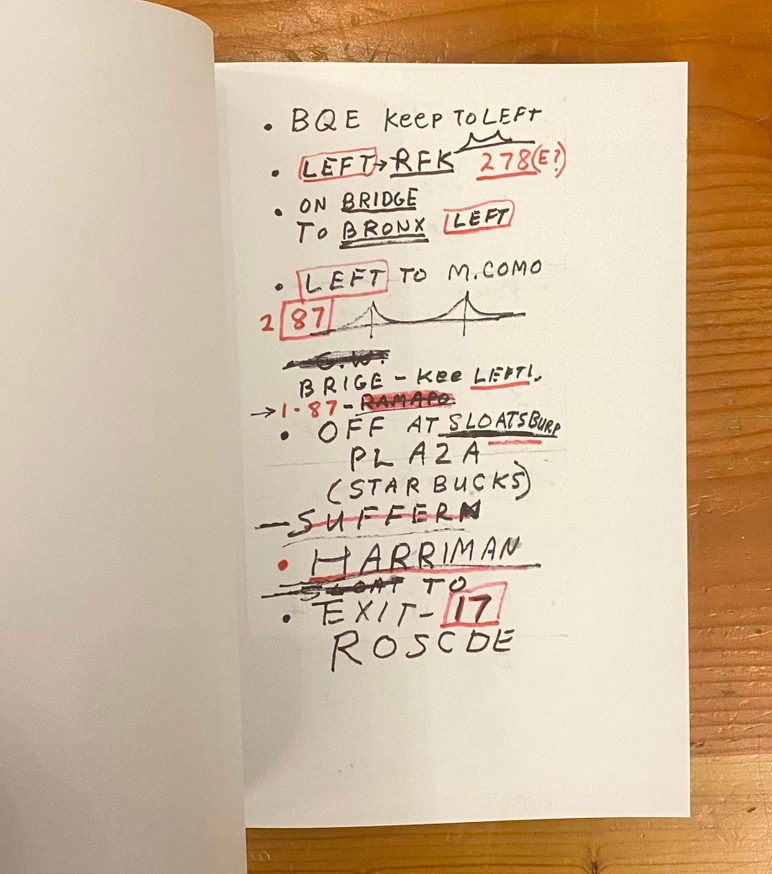 • BQE KeeP TO LEFT
• LEFT→RFK 278(E?)
• ON BRIDGE
TO BRONX LEFT
• LEFT TO M.COMO
2 87
G.W.
BRIGE – Kee LEFT!.
→ 1-87-RAMAPO
• OFF AT SLOATSBURP
PLA2A
(STARBUCKS)
– SUFFERN
• HARRIMAN
SLOAT TO
• EXIT– 17
ROSCOE